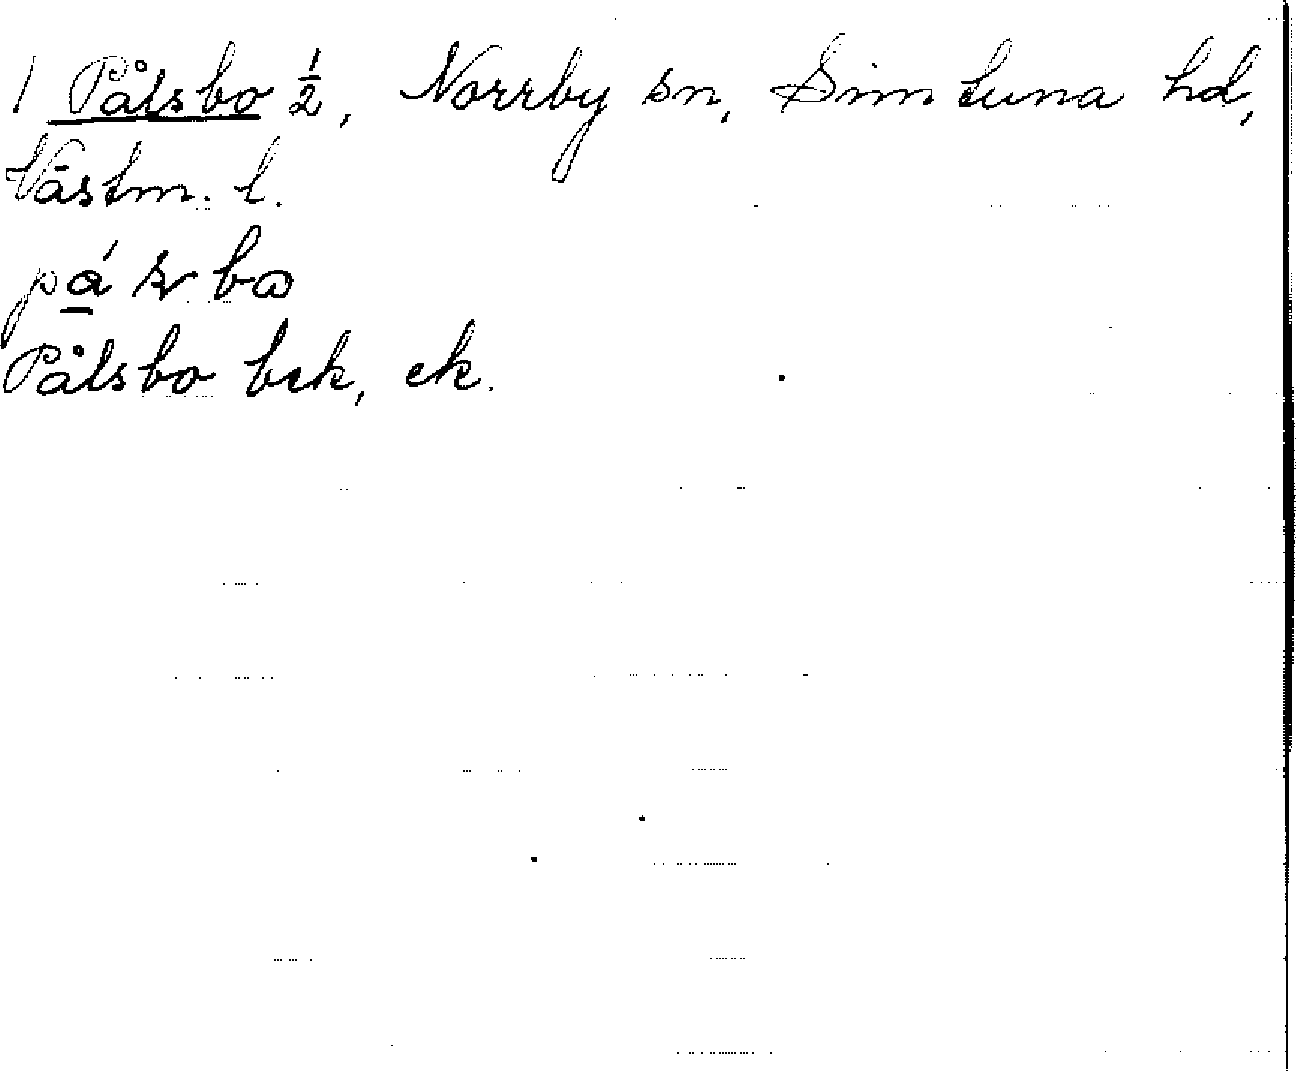 1 Pålsbo ½, Norrby sn, Simtuna hd,
Västm. l.
Pålsbo bek, ek.